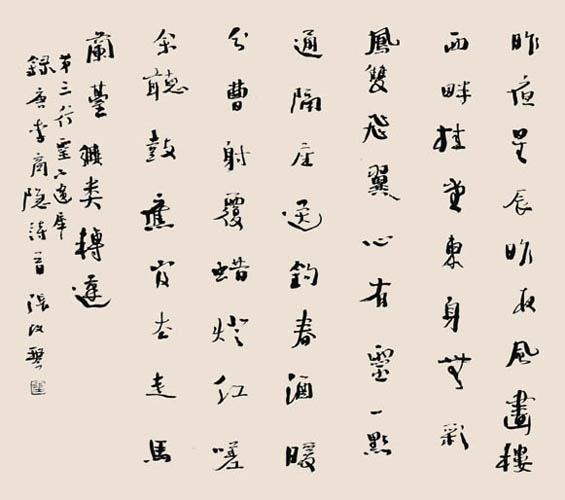 昨夜星辰昨夜風畫樓
西畔桂堂東身無彩
鳳雙飛翼心有靈一點
通隔座送鉤春酒暖
分曹射覆蜡燈紅嗟
余聽鼓應官去走馬
蘭臺类轉蓬
第三行靈下遺犀
錄唐李商隱詩首 張改琴